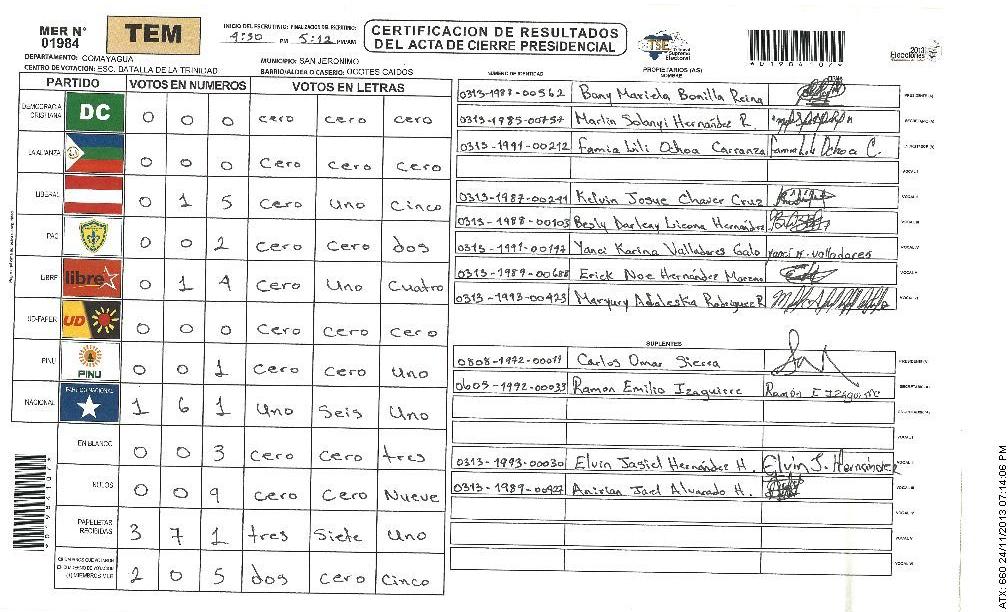 MER N° 01984
TEM
INICIO DEL ESCRUTINIO: FINALIZACION DEL ESCRUTINIO:
4:30 PM 5:12 PM/AM
CERTIFICACION DE RESULTADOS
DEL ACTA DE CIERRE PRESIDENCIAL
TSE Tribunal Supremo Electoral
2013 Elecciones
DEPARTAMENTO: COMAYAGUA
MUNICIPIO: SAN JERONIMO
CENTRO DE VOTACION: ESC. BATALLA DE LA TRINIDAD
BARRIO/ALDEA O CASERIO: OCOTES CAIDOS
PARTIDO VOTOS EN NUMEROS VOTOS EN LETRAS
DEMOCRACIA CRISTIANA DC 0 0 0 cero cero cero
LA ALIANZA 0 0 0 Cero Cero Cero
LIBERAL 0 1 5 Cero Uno Cinco
PAC 0 0 2 Cero Cero dos
LIBRE libre 0 1 4 Cero Uno Cuatro
UD-FAPER UD 0 0 0 Cero Cero Cero
PINU PINU 0 0 1 Cero Cero Uno
NACIONAL PARTIDO NACIONAL 1 6 1 Uno Seis Uno
EN BLANCO 0 0 3 Cero Cero tres
NULOS 0 0 9 Cero Cero Nueve
PAPELETAS RECIBIDAS 3 7 1 tres Siete Uno
2 0 5 dos Cero Cinco
NUMERO DE IDENTIDAD PROPIETARIOS (AS) NOMBRE
0313-1987-00562 Bany Mariela Bonilla Reina PRESIDENTE(A)
0313-1985-00757 Marlin Solanyi Hernández R. SECRETARIO(A)
0313-1991-00212 Famia Lili Ochoa Carranza Famia Lili Ochoa C.
VOCAL I
0313-1987-00241 Kelvin Josue Chavez Cruz VOCAL II
0313-1988-00103 Besly Darleny Licona Hernández VOCAL III
0313-1991-00197 Yanci Karina Valladares Galo Yanci K. Valladares VOCAL IV
0313-1989-00688 Erick Noe Hernández Moreno VOCAL V
0313-1993-00423 Maryury Adaleska Rodriguez R VOCAL VI
SUPLENTES
0808-1972-00011 Carlos Omar Sierra PRESIDENTE(A)
0605-1992-00033 Ramon Emilio Izaguirre Ramón E Izaguirre SECRETARIO(A)
VOCAL I
0313-1993-00030 Elvin Jasiel Hernández H. Elvin J. Hernández VOCAL II
0313-1989-00427 Anirian Jael Alvarado H. VOCAL III
VOCAL IV
VOCAL V
VOCAL VI
ATX: 660 24/11/2013 07:14:06 PM